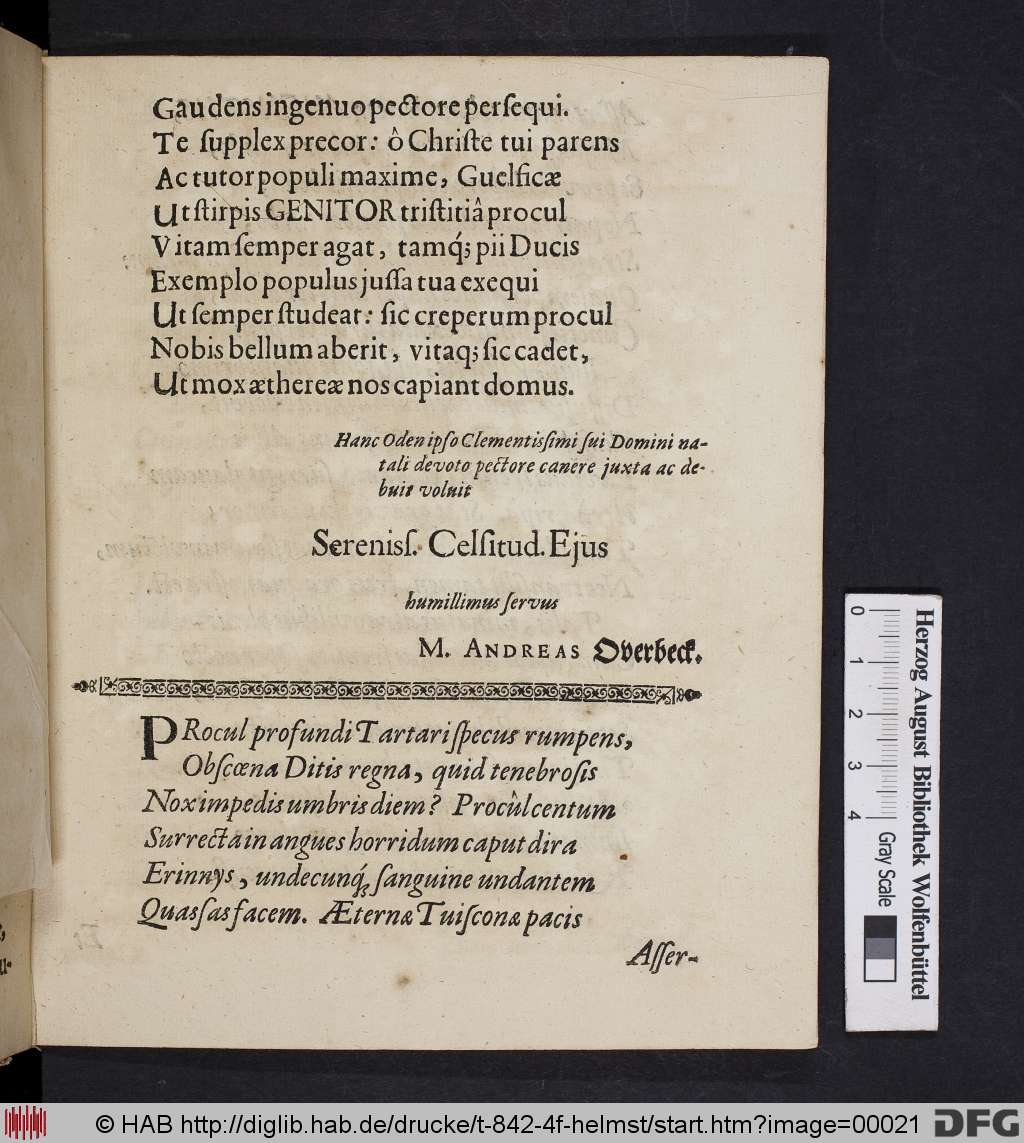 Gaudens ingenuo pectore perſequi.
Te ſupplex precor: ô Chriſte tui parens
Ac tutor populi maxime, Guelficæ
Ut ſtirpis GENITOR triſtitiâ procul
Vitam ſemper agat, tamq́; pii Ducis
Exemplo populus juſſa tua exequi
Ut ſemper ſtudeat: ſic creperum procul
Nobis bellum aberit, vitaq; ſic cadet,
Ut mox æthereæ nos capiant domus.
Hanc Oden ipſo Clementisſimi ſui Domini na-
tali devoto pectore canere juxta ac de-
buit voluit
Sereniſſ. Celſitud. Ejus
humillimus ſervus
M. ANDREAS Overbeck.
PRocul profundi Tartari ſpecus rumpens,
Obſcœna Ditis regna, quid tenebroſis
Nox impedis umbris diem? Procul centum
Surrecta in angues horridum caput dira
Erinnys, undecunq́; ſanguine undantem
Quasſas facem. Æternæ Tuiſconæ pacis
Aſſer-
0 1 2 3 4
Gray Scale
Herzog August Bibliothek Wolfenbüttel
© HAB http://diglib.hab.de/drucke/t-842-4f-helmst/start.htm?image=00021
DFG